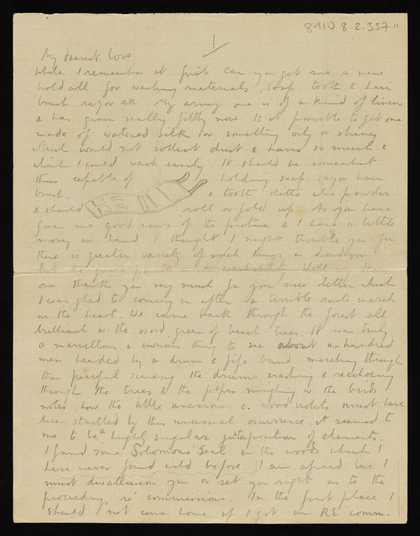 8910 8.2.337
1
My Dearest Love
While I remember it first can you get me a new
hold all for washing materials, soap tooth & hair
brush razor etc. My army one is of a kind of linen
& has grown really filthy now. Is it possible to get one
made of watered silk or something oily or shiny
which would not collect dust & hairs so much &
which I could wash easily. It should be somewhat
thus capable of holding soap razor hair
brush & tooth ditto also powder
& should roll or fold up. As you have
given me good news of the picture & I have a little
money in hand I thought I might trouble you for
there is greater variety of such things in London
am thank you very much for your nice letter which
I was glad to coming in after a terrible route march
in the heat. We came back through the forest all
brilliant in the vivid green of beech trees. It was truly
a marvellous & curious thing to see about a hundred
men headed by a drum & fife band marching through
this peaceful scenery the drums crashing & reechoing
through the trees & the fifes mingling in the birds
notes how the little anemones & wood violets must have
been startled by this unusual occurrence, it seemed to
me to be a highly singular juxtaposition of elements.
I found some Solomons Seal in the woods which I
have never found wild before. I am afraid love I
must disillusion you or set you right as to the
proceeding re' commissions. In the first place I
should not come home if I got an RE comm.